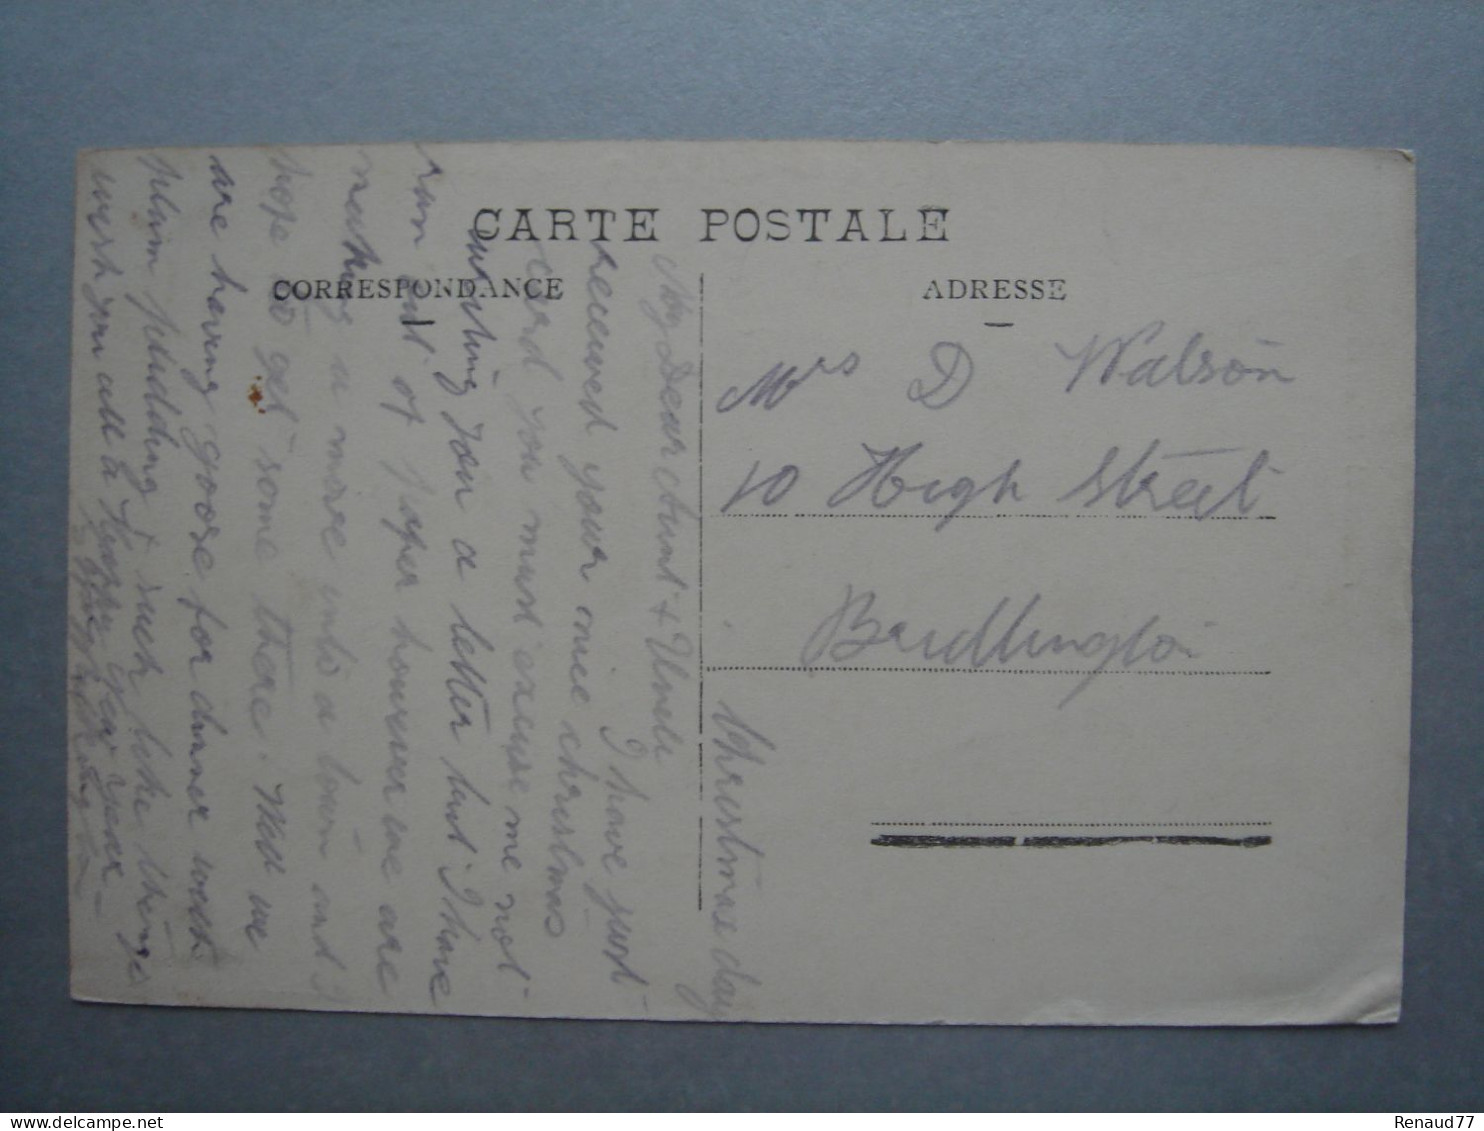 CARTE POSTALE
CORRESPONDANCE
ADRESSE
Mrs D Watson
10 High Street
Bridlington
Christmas day
My Dear Aunt & Uncle
I have just
received your nice christmas
card you must excuse me not
writing you a letter but I have
ran out of paper however we are
making a move into a town and I
hope to get some there. Well we
are having goose for dinner with
plum pudding & such like things
wish you all a Happy New year
Renaud77